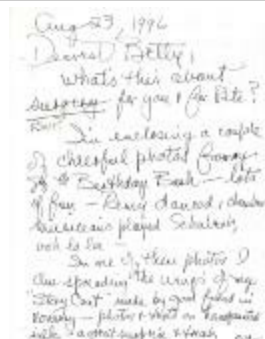 Aug 23, 1996
Dearest Betty,
What's this about
surgery for you & for Pete?
I'm enclosing a couple
of cheerful photos from
my Birthday Bash — lots
of fun — Remy danced, chamber
musicians played Schubert,
ooh la la —
In one of these photos I
am spreading the wings of my
"Story Coat" made by good friend in
— photos & texts on
silk — a great surprise &